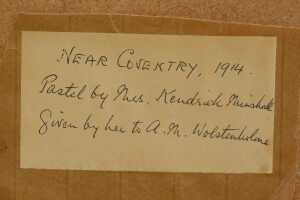 NEAR COVENTRY, 1914.
Pastel by Mrs. Kendrick Minshall
Given by her to A. M. Wolstenholme